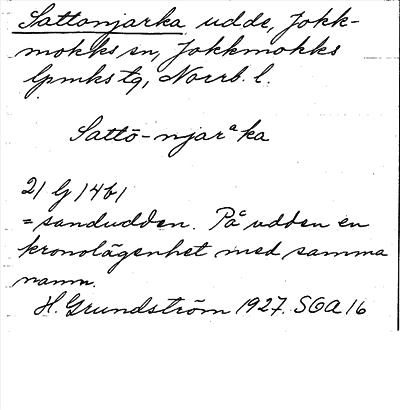 Sattonjarka udde, Jokk-
mokks sn, Jokkmokks
lpmks tg, Norrb. l.
Sattō-njarᵃka
21 G 14b1
= sandudden. På udden en
kronolägenhet med samma
namn.
H. Grundström 1927. SOA 16